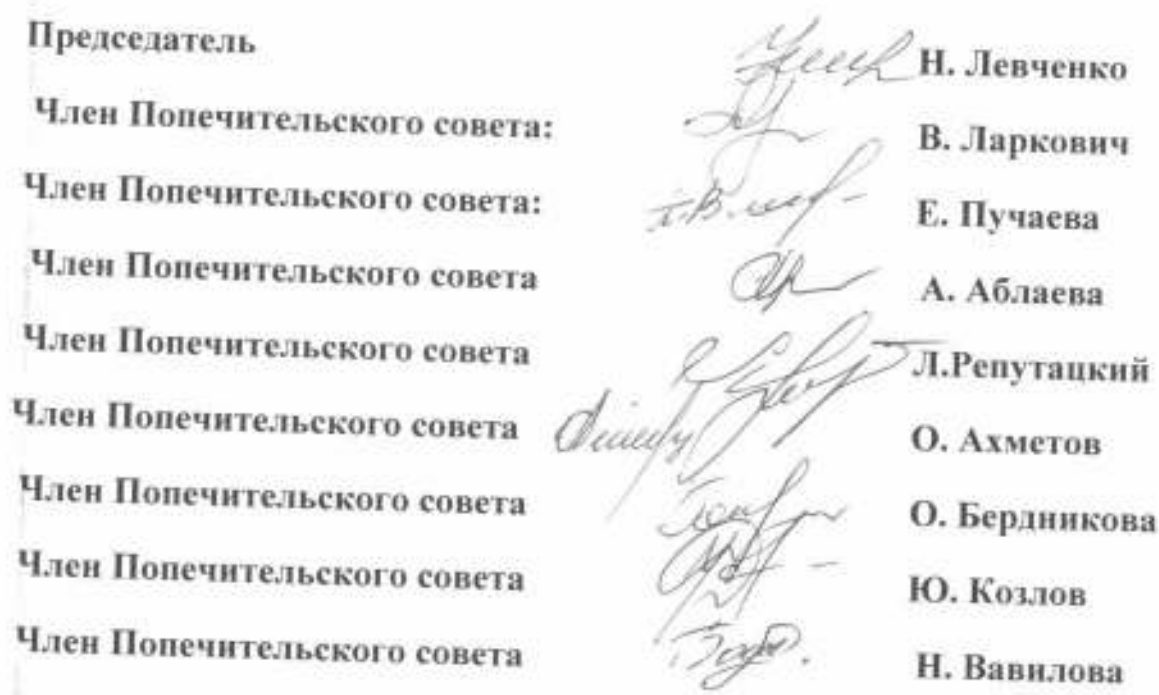 Председатель Н. Левченко
Член Попечительского совета: В. Ларкович
Член Попечительского совета: Е. Пучаева
Член Попечительского совета А. Аблаева
Член Попечительского совета Л.Репутацкий
Член Попечительского совета О. Ахметов
Член Попечительского совета О. Бердникова
Член Попечительского совета Ю. Козлов
Член Попечительского совета Н. Вавилова